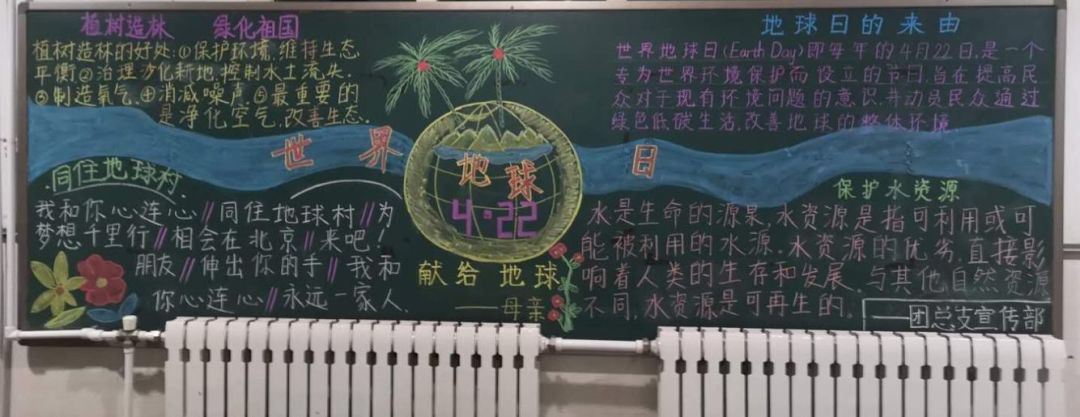 植树造林 绿化祖国
植树造林的好处:①保护环境,维持生态
平衡②治理沙化耕地,控制水土流失.
③制造氧气.④消减噪声⑤最重要的
是净化空气,改善生态.
地球日的来由
世界地球日(Earth Day)即每年的4月22日,是一个
专为世界环境保护而设立的节日,旨在提高民
众对于现有环境问题的意识,并动员民众通过
绿色低碳生活,改善地球的整体环境.
世界
地球
日
4·22
同住地球村
我和你心连心//同住地球村//为
梦想千里行//相会在北京//来吧!
朋友//伸出你的手//我和
你心连心//永远一家人.
献给地球
——母亲
保护水资源
水是生命的源泉,水资源是指可利用或可
能被利用的水源.水资源的优劣,直接影
响着人类的生存和发展.与其他自然资源
不同,水资源是可再生的.
——团总支宣传部